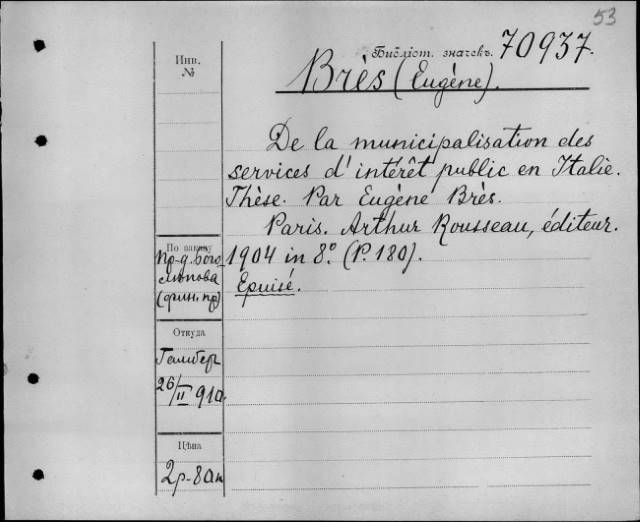 53
Инв.
№
Библіот. значекъ. 70937.
Brès (Eugène).
De la municipalisation des
services d'intérêt public en Italie.
Thèse. Par Eugène Brès.
Paris. Arthur Rousseau, éditeur.
1904 in 8º. (P. 180).
Épuisé.
По заказу
Пр-д. Бого-
лѣпова
(фин. пр)
Откуда
Галибер
26/II 910.
Цѣна
2р-80к